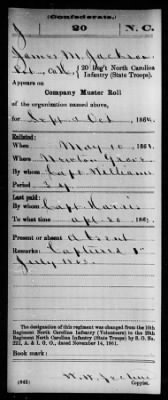 (Confederate.)
J 20 N.C.
James M. Jackson
Co. K, 20 Reg't North Carolina
Infantry (State Troops).
Appears on
Company Muster Roll
of the organization named above,
for Sept & Oct, 1864.
Enlisted:
When May 10, 186
Where Newton Grove
By whom Capt Williams
Period 3 y.
Last paid:
By whom Capt Harris
To what time 186
Present or absent Absent
Remarks: Captured
July 1863.
The designation of this regiment was changed from the 10th
Regiment North Carolina Infantry (Volunteers) to the 20th
Regiment North Carolina Infantry (State Troops) by S. O. No.
222, A. & I. G. O., dated November 14, 1861.
Book mark:
(642)
Copyist.